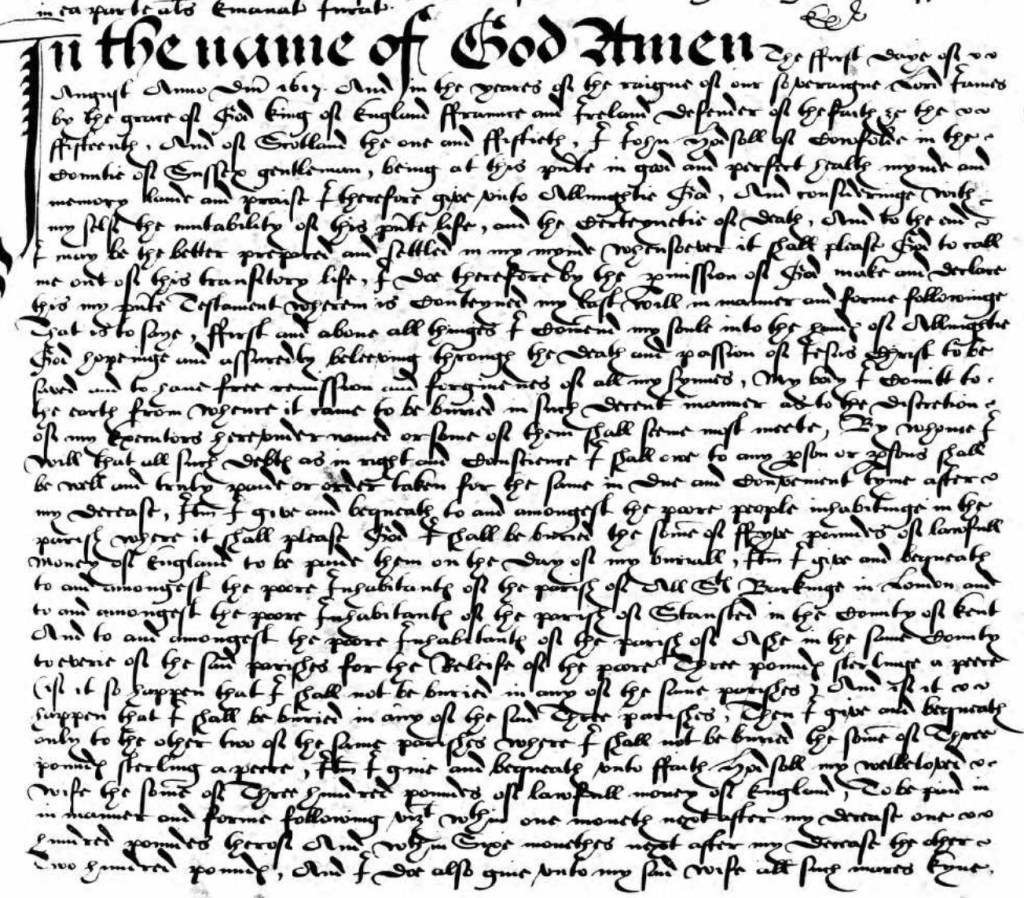 in ea parte al͠s emanat fuerat.
In the name of God Amen The ffirst daye of
August Anno Dn͠i 1617. And in the yeares of the raigne of our soveraigne Lord James
by the grace of God king of England ffraunce and Ireland defender of the faith &c the
ffifteenth, And of Scotland the one and ffiftieth, I John Hodsoll of Cowfolde in the
Countie of Sussex gentleman, being at this p͠nte in good and perfect health mynde and
memory laude and praise I therefore give unto Allmightie God, And consideringe with
my selfe the mutability of this p͠nte life, and the certeynetie of death, And to the end
I may be the better prepared and settled in my mynde whensoever it shall please God to call
me out of this transitory life, I doe therefore by the p͠mission of God make and declare
this my p͠nte Testament wherein is conteyned my last will in manner and forme followinge
That is to saye, ffirst and above all thinges I com͠end my soule into the handes of Allmightie
God hopeinge and assuredly beleeving through the death and passion of Jesus Christ to be
saved and to have free remission and forgivenes of all my synnes, My body I com͠itt to
the earth from whence it came to be buried in such decent manner as to the discretion
of my executors hereunder named or some of them shall seeme most meete, By whome I
will that all such debtes as in right and conscience I shall owe to any p͠son or p͠sons shall
be well and truly paide or order taken for the same in due and convenient tyme after
my decease, It͠m I give and bequeath to and amongest the poore people inhabitinge in the
parish where it shall please God I shall be buried the som͠e of ffyve poundes of lawfull
money of England to be paide them on the day of my buriall, It͠m I give and bequeath
to and amongest the poore Inhabitantes of the parish of All Stes Barkinge in London and
to and amongest the poore Inhabitantes of the parish of Stansted in the County of Kent
And to and amongest the poore Inhabitantes of the parish of Ashe in the same County
to everie of the said parishes for the Releife of the poore Three poundes sterlinge a peece
(if it so happen that I shall not be buried in any of the same parishes) And if it
happen that I shall be buried in any of the said Three parishes, Then I give and bequeath
only to the other two of the same parishes where I shall not be buried the som͠e of Three
poundes sterling a peece, It͠m I give and bequeath unto ffaith Hodsoll my welbeloved
wife the som͠e of Three hundred poundes of lawfull money of England, To be paid in
in manner and forme following, vizt within one moneth next after my decease one
hundred poundes thereof And within Sixe monethes next after my decease the other
two hundred poundes, And I doe also give unto my said wife all such mares kyne,